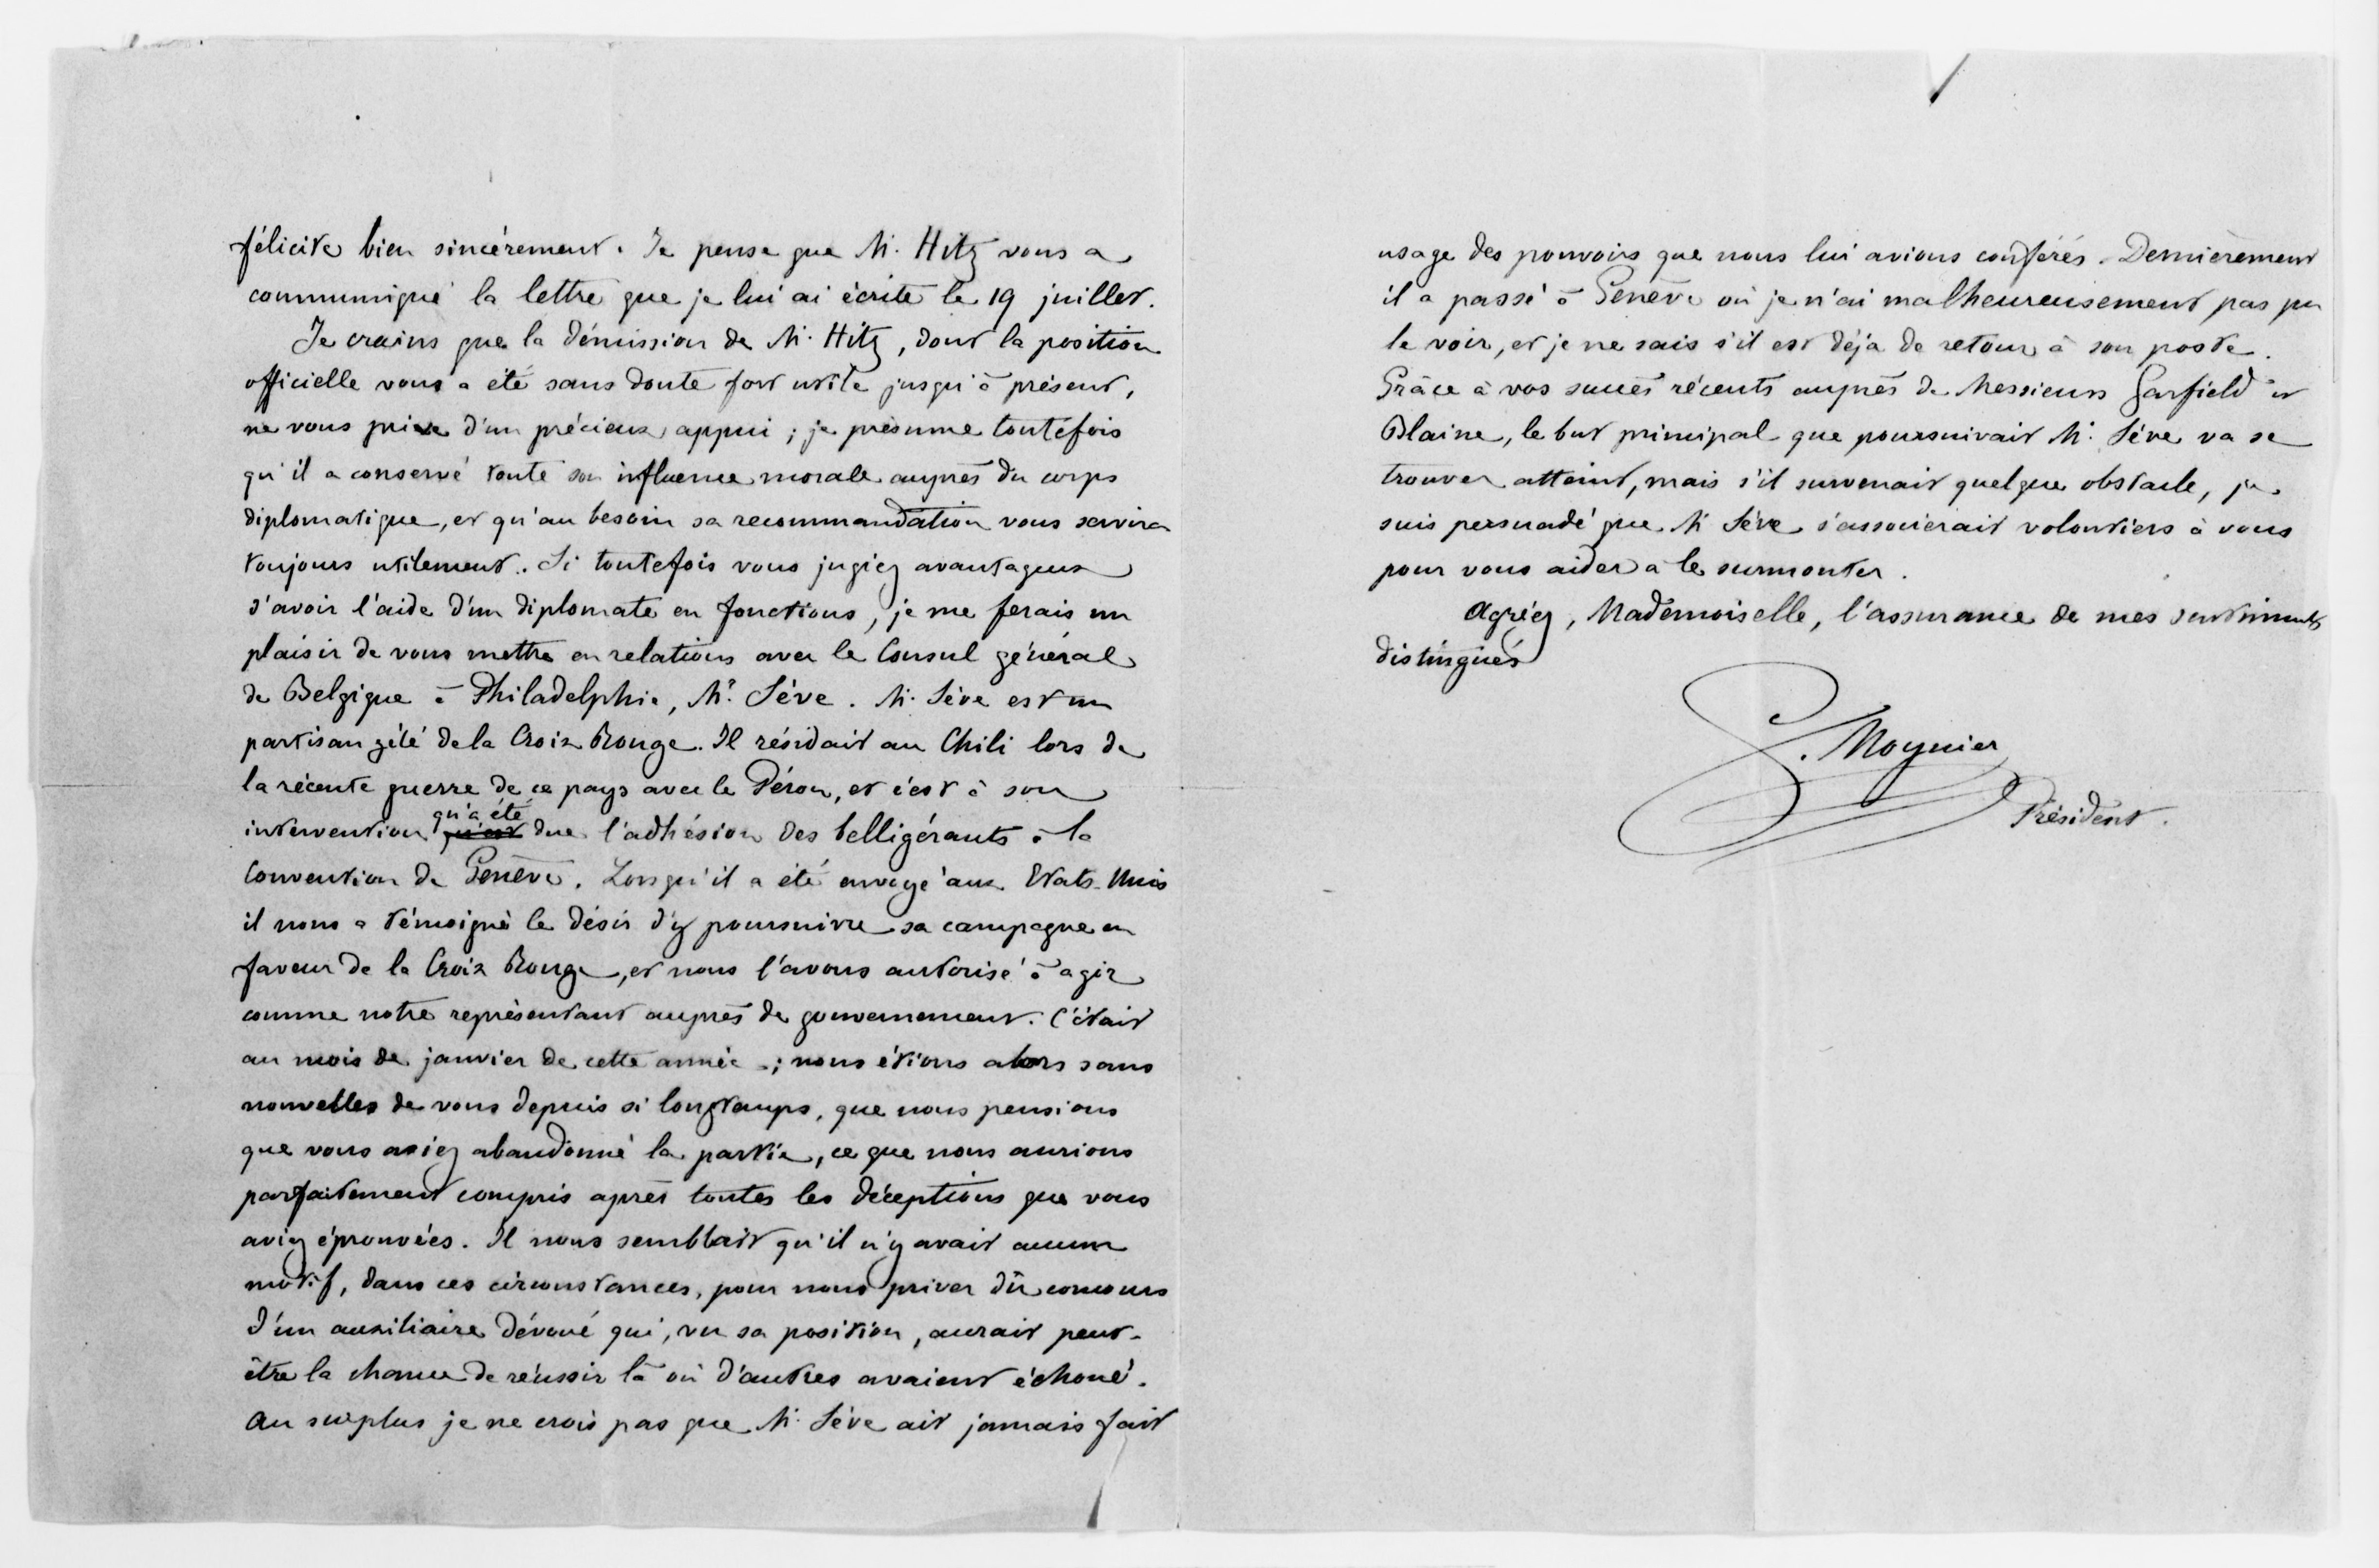 félicite bien sincèrement. Je pense que Mr. Hitz vous a
communiqué la lettre que je lui ai écrite le 19 juillet.
Je crains que la démission de Mr. Hitz, dont la position
officielle vous a été sans doute fort utile jusqu'à présent,
ne vous prive d'un précieux appui ; je présume toutefois
qu'il a conservé toute son influence morale auprès du corps
diplomatique, et qu'au besoin sa recommandation vous servira
toujours utilement. Si toutefois vous jugiez avantageux
d'avoir l'aide d'un diplomate en fonctions, je me ferais un
plaisir de vous mettre en relations avec le Consul général
de Belgique à Philadelphie, Mr. Sève. Mr. Sève est un
partisan zélé de la Croix Rouge. Il résidait au Chili lors de
la récente guerre de ce pays avec le Pérou, et c'est à son
intervention qu'a été due l'adhésion des belligérants à la
Convention de Genève. Lorsqu'il a été envoyé aux Etats-Unis
il nous a témoigné le désir d'y poursuivre sa campagne en
faveur de la Croix Rouge, et nous l'avons autorisé à agir
comme notre représentant auprès du gouvernement. C'était
au mois de janvier de cette année ; nous étions alors sans
nouvelles de vous depuis si longtemps, que nous pensions
que vous aviez abandonné la partie, ce que nous aurions
parfaitement compris après toutes les déceptions que vous
aviez éprouvées. Il nous semblait qu'il n'y avait aucun
motif, dans ces circonstances, pour nous priver du concours
d'un auxiliaire dévoué qui, vu sa position, aurait peut-
être la chance de réussir là où d'autres avaient échoué.
Au surplus je ne crois pas que Mr. Sève ait jamais fait
usage des pouvoirs que nous lui avions conférés. Dernièrement
il a passé à Genève où je n'ai malheureusement pas pu
le voir, et je ne sais s'il est déjà de retour à son poste.
Grâce à vos succès récents auprès de Messieurs Garfield et
Blaine, le but principal que poursuivait Mr. Sève va se
trouver atteint, mais s'il survenait quelque obstacle, je
suis persuadé que Mr Sève s'associerait volontiers à vous
pour vous aider à le surmonter.
Agréez, Mademoiselle, l'assurance de mes sentiments
distingués
G. Moynier
Président.